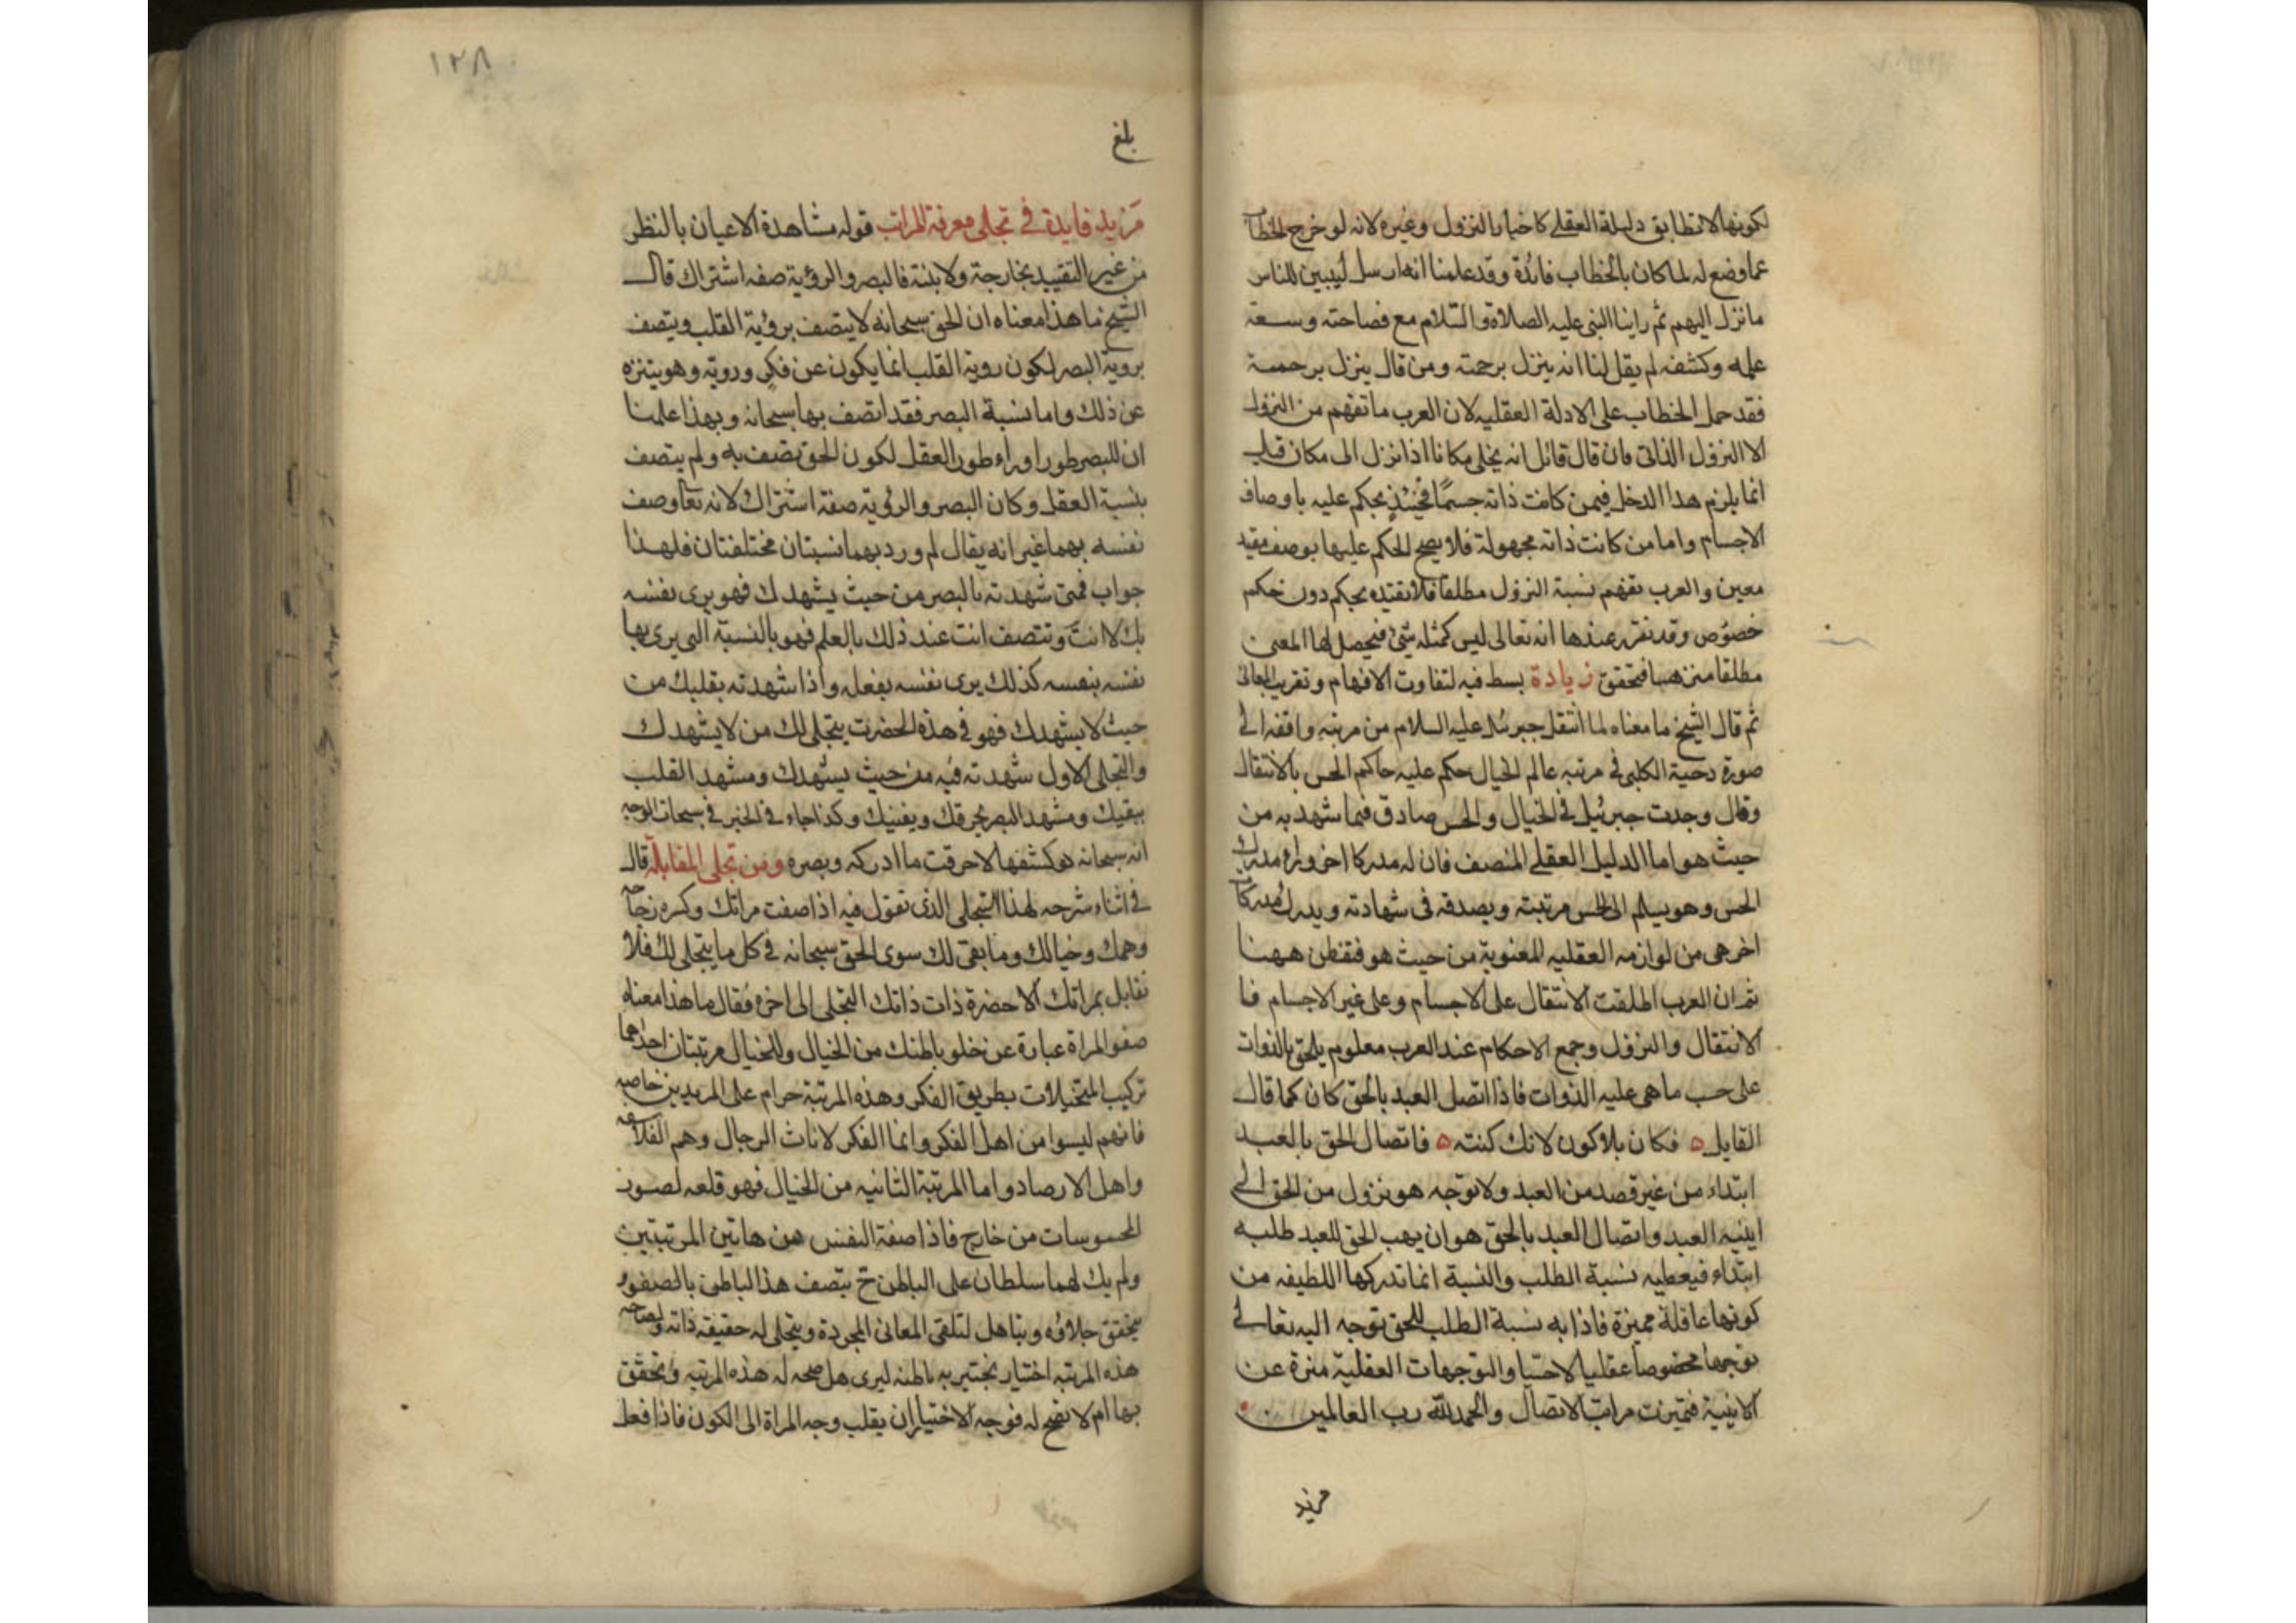 لكونها لا تطابق دليله العقلى كاخباره بالنزول وغيره لانه لو خرج الخطاب
عما وضع له لما كان بالخطاب فائدة وقد علمنا انه ارسل ليبين للناس
ما نزل اليهم ثم راينا النبى عليه الصلاة والسلام مع فصاحته وسعة
علمه وكشفه لم يقل لنا انه ينزل برحمته ومن قال ينزل برحمته
فقد حمل الخطاب على الادلة العقليه لان العرب ما تفهم من النزول
الا النزول الذاتى فان قال قائل انه يخلى مكانا اذا نزل الى مكان قلت
انما يلزم هذا الدخل فيمن كانت ذاته جسمًا فحينئذ يحكم عليه باوصاف
الاجسام واما من كانت ذاته مجهولة فلا يصح الحكم عليها بوصف مقيد
معين والعرب تفهم نسبة النزول مطلقا فلا تقيده بحكم دون حكم
خصوص وقد تقرر عندها انه تعالى ليس كمثله شئ فيحصل لها المعنى
مطلقا منزها فتحقق زيادة بسط فيه لتفاوت الافهام وتقريب المعانى
ثم قال الشيخ ما معناه لما انتقل جبرئيل عليه السلام من مرتبه وافقه الى
صورة دحية الكلبى فى مرتبه عالم الخيال حكم عليه حاكم الحس بالانتقال
وقال وجدت جبرئيل فى الخيال والحس صادق فيما شهد به من
حيث هو اما الدليل العقلى المنصف فان له مدركا اخر وراء مدرك
الحس وهو يسلم الى الحس مرتبته ويصدقه فى شهادته ويدرك مدركات
اخر هى من لوازمه العقليه المعنوية من حيث هو فتفطن ههنا
ثم ان العرب اطلقت الانتقال على الاجسام وعلى غير الاجسام فا
لانتقال والنزول وجمع الاحكام عند العرب معلوم يلحق بالذوات
على حسب ما هى عليه الذوات فاذا اتصل العبد بالحق كان كما قال
القايل ه فكان بلا كون لانك كنته ه فاتصال الحق بالعبد
ابتداء من غير قصد من العبد ولا توجه هو نزول من الحق الى
اينيه العبد واتصال العبد بالحق هو ان يهب الحق للعبد طلبه
ابتداء فيعطيه نسبة الطلب والنسبة انما تدركها اللطيفه من
كونها عاقلة مميزة فاذا به نسبة الطلب للحق توجه اليه تعالى
توجها مخصوصا عقليا لا حسيا والتوجهات العقلية منزة عن
الاينية فتميزت مراتب الاتصال والحمد لله رب العالمين
مزيد
١٢٨
بلغ
مزيد فايدة فى تجلى معرفة المراتب قوله مشاهدة الاعيان بالنظر
من غير التقييد بخارجة ولا بنية فالبصر والرؤية صفه اشتراك قال
الشيخ ما هذا معناه ان الحق سبحانه لا يتصف برؤية القلب ويتصف
بروية البصر لكون روية القلب انما يكون عن فكر وروية وهو يتنزه
عن ذلك واما نسبة البصر فقد اتصف بها سبحانه وبهذا علمنا
ان للبصر طورا وراء طور العقل لكون الحق تصف به ولم يتصف
بنسبة العقل وكان البصر والرؤية صفة اشتراك لانه تعا وصف
نفسه بهما غير انه يقال لم ورد بهما نسبتان مختلفتان فلهذا
جواب فمتى شهدته بالبصر من حيث يشهدك فهو يرى نفسه
بك لا انت وتتصف انت عند ذلك بالعلم فهو بالنسبة التى يرى بها
نفسه بنفسه كذلك يرى نفسه بفعله واذا شهدته بقلبك من
حيث لا يشهدك فهو فى هذه الحضرت يتجلى لك من لا يشهدك
والتجلى الاول شهدته فيه من حيث يشهدك ومشهد القلب
يبقيك ومشهد البصر يحرقك ويفنيك وكذا جاء فى الخبر فى سبحات الوجه
انه سبحانه لو كشفها لاحرقت ما ادركه وبصره ومن تجلى المقابلة قال
فى اثناء شرحه لهذا التجلى الذى تقول فيه اذا صفت مراتك وكسره زجاجه
وهمك وخيالك وما بقى لك سوى الحق سبحانه فى كل ما يتجلى لك فلا
تقابل بمراتك الا حضرة ذات ذاتك التجلى الى اخره فقال ما هذا معناه
صفو المراة عبارة عن خلو باطنك من الخيال وللخيال مرتبتان احداهما
تركيب المتخيلات بطريق الفكر وهذه المرتبة حرام على المريدين خاصه
فانهم ليسوا من اهل الفكر وانما الفكر لاناث الرجال وهم الفلاسفه
واهل الارصاد واما المرتبة الثانيه من الخيال فهو قلعه لصور
المحسوسات من خارج فاذا صفة النفس من هاتين المرتبتين
ولم يك لهما سلطان على الباطن ح يتصف هذا الباطن بالصفو
يتحقق جلاؤه ويتاهل لتلقى المعانى المجردة ويتجلى له حقيقه ذاته ولصاحب
هذه المرتبه اختبار يختبر به باطنه ليرى هل صحه له هذه المرتبه وتحقق
بها ام لا تصح له فوجه الاختبار ان يقلب وجه المراة الى الكون فاذا فعل